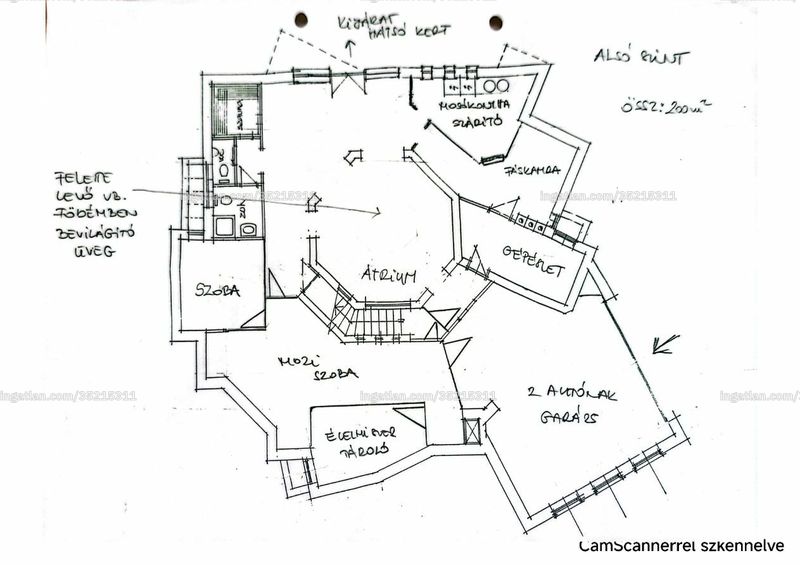 KIJÁRAT
HÁTSÓ KERT
ALSÓ SZINT
ÖSSZ: 200m²
MOSÓKONYHA
SZÁRÍTÓ
SZAUNA
FÁSKAMRA
FELETTE
LEVŐ VB.
FÖDÉMBEN
BEVILÁGÍTÓ
ÜVEG
ingatlan.com/35215311
ingatlan.com/35215311
GÉPÉSZET
ÁTRIUM
SZOBA
MOZI
SZOBA
ingatlan.com/35215311
ingatlan.com/35215311
ingatlan.com/35215311
2 AUTÓNAK
GARÁZS
ÉLELMISZER
TÁROLÓ
CamScannerrel szkennelve